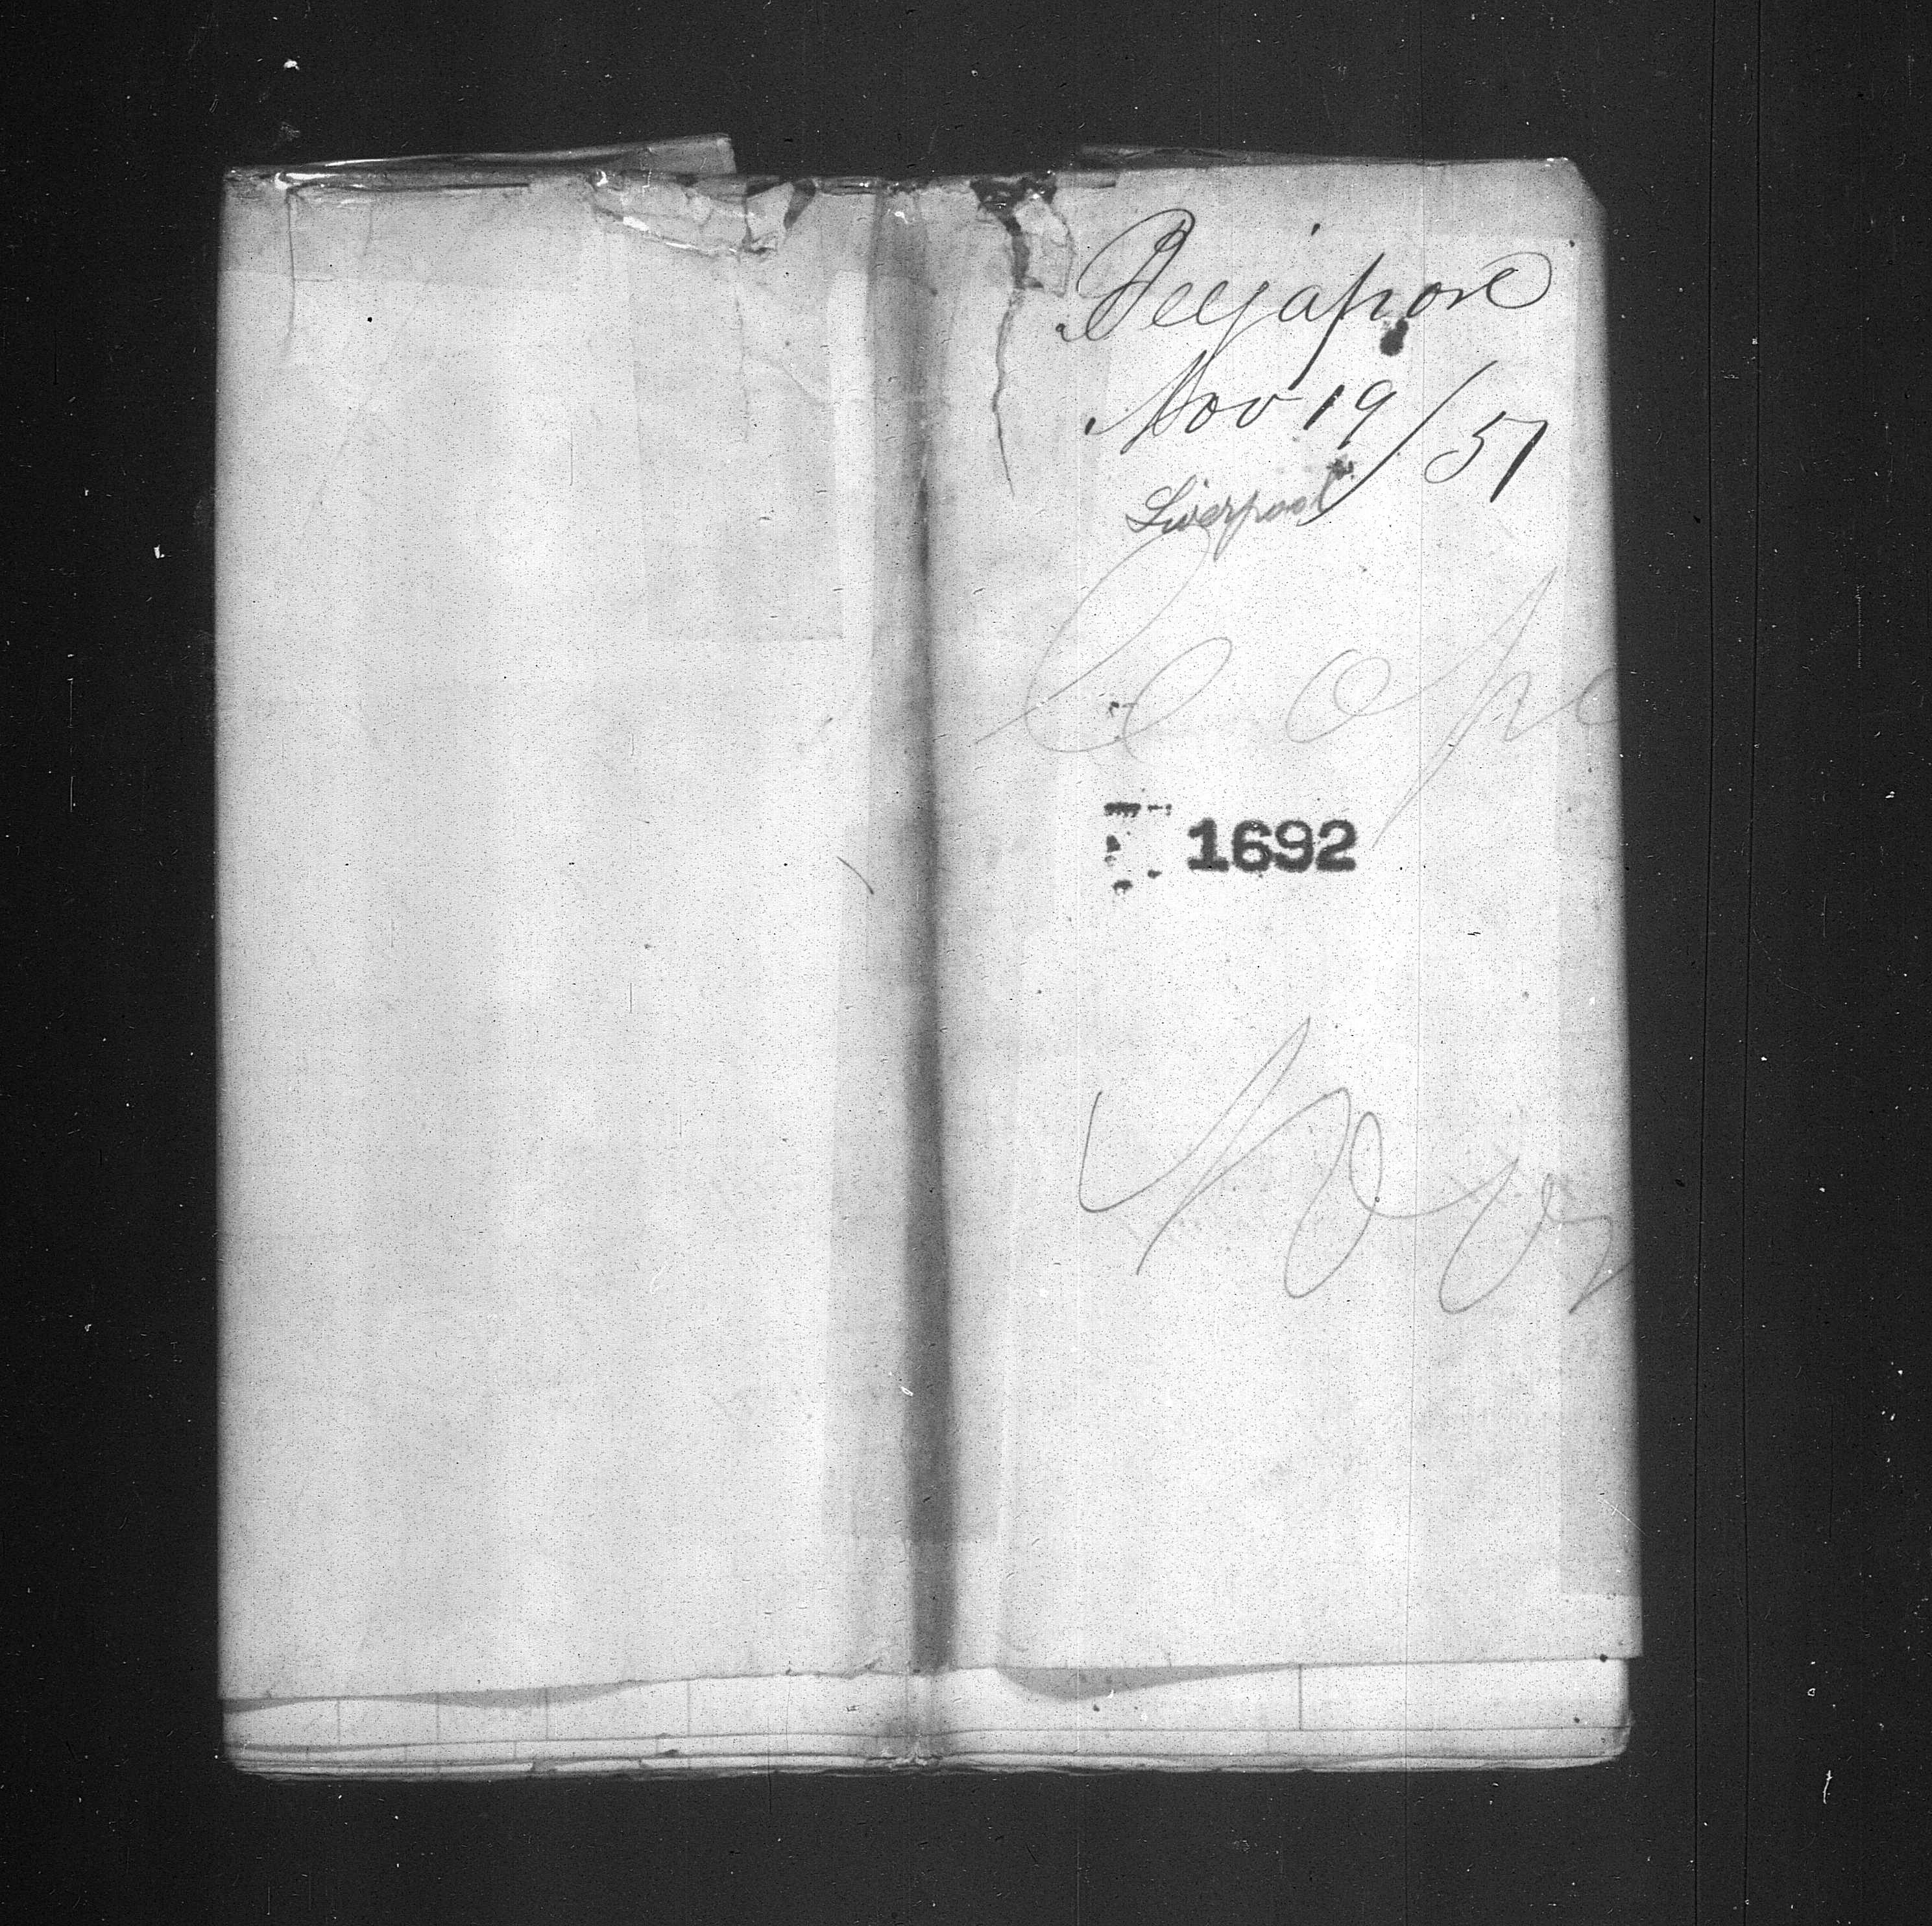 Beejapore
Nov 19/57
Liverpool
1692
Nov